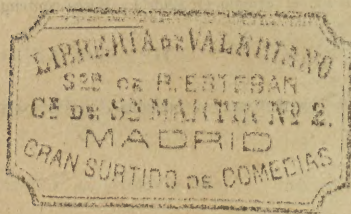 LIBRERIA DE VALERIANO
SOR DE R. ESTEBAN
CE DE SN MARTIN Nº 2.
MADRID
GRAN SURTIDO DE COMEDIAS